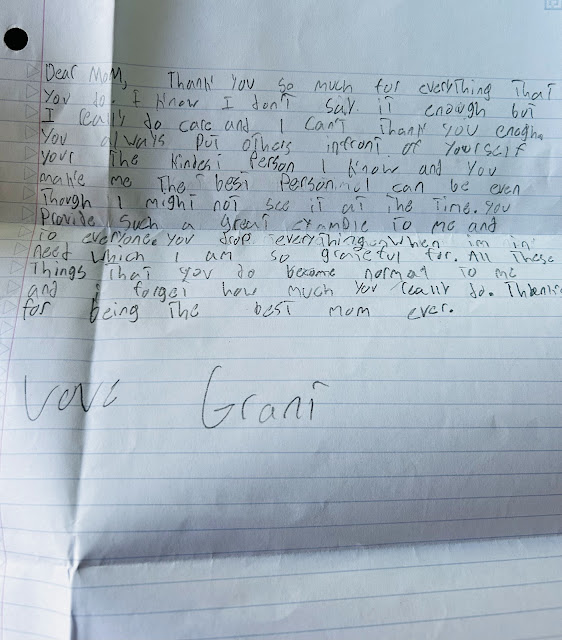 Dear Mom, Thank you so much for everything that
you do. I know I don't say it enough but
I really do care and I can't thank you enogh.
You always put others infront of yourself
your the kindest person I know and you
make me the best person I can be even
though I might not see it at the time. You
provide such a great example to me and
to everyone. You drop everything when im in
need which I am so grateful for. All these
things that you do become normal to me
and i forget how much you really do. Thanks
for being the best mom ever.
Love Grant